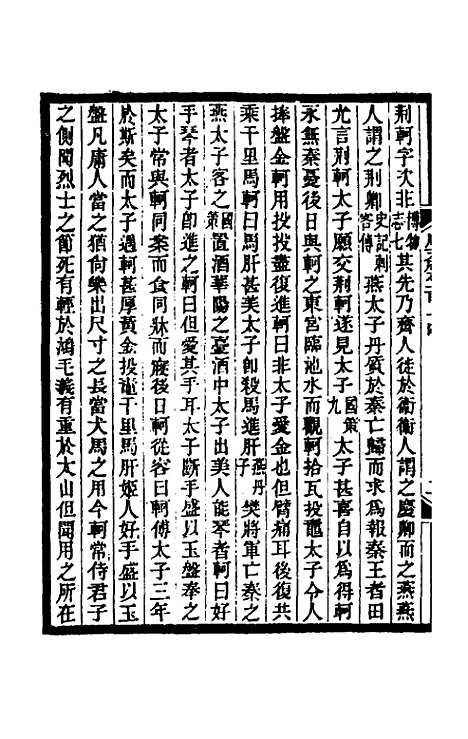 荆軻字次非博物志七其先乃齊人徒於衛衛人謂之慶卿而之燕燕
人謂之荆卿史記刺客傳燕太子丹質於秦亡歸而求爲報秦王者田
尤言荆軻太子願交荆軻遂見太子國策九太子甚喜自以爲得軻
永無秦憂後日與軻之東宫臨池水而觀軻拾瓦投鼃太子令人
捧盤金軻用投投盡復進軻曰非太子愛金也但臂痛耳後復共
乘千里馬軻曰馬肝甚美太子卽殺馬進肝燕丹子樊將軍亡秦之
燕太子客之國策置酒華陽之臺酒中太子出美人能琴者軻曰好
手琴者太子卽進之軻曰但愛其手耳太子斷手盛以玉盤奉之
太子常與軻同案而食同牀而寢後日軻從容曰軻傅太子三年
於斯矣而太子遇軻甚厚黄金投鼃千里馬肝姬人好手盛以玉
盤凡庸人當之猶尙樂出尺寸之長當犬馬之用今軻常侍君子
之側聞烈士之節死有輕於鴻毛義有重於太山但聞用之所在